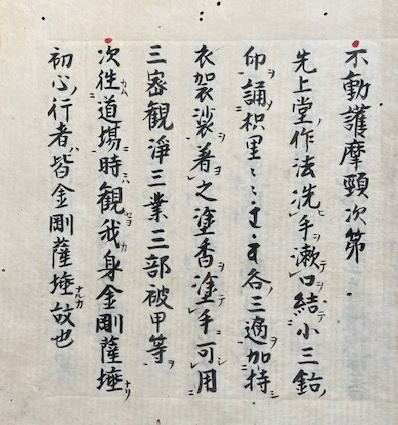 不動護摩頸次第
先上堂作法洗手漱口結小三鈷
印誦枳里〻〻各三遍加持
衣袈裟著之塗香塗手可用
三密觀淨三業三部被甲等
次徃道場時觀我身金剛薩埵
初心行者皆金剛薩埵故也